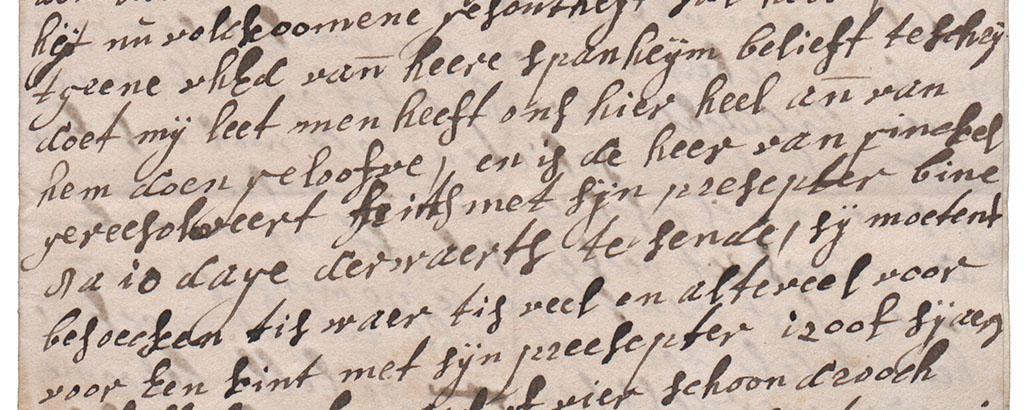 heijt nu volckoomene gesontheijt
tgeene vhEd van heere spanheijm belieft te schrij
doet mij leet men heeft ons hier heel an van
hem doen geloofve, en is de heer van ginckel
gereesolveert met sijn presepter bine
8 a 10 dage derwaerts te sende, sij moetent
besoecken tis waer tis veel en alteveel voor
voor Een kint met sijn preesepter 1200f sijaers
vier schoon drooch